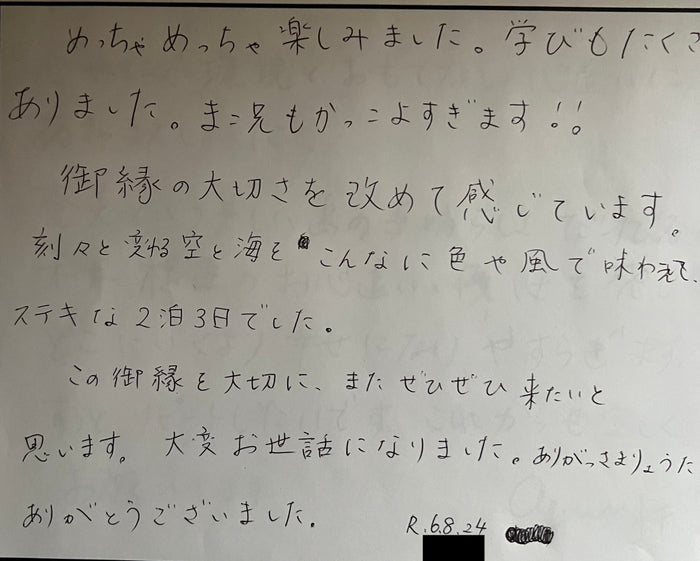 めっちゃめっちゃ楽しみました。学びもたくさ
ありました。まこ兄もかっこよすぎます!!
御縁の大切さを改めて感じています。
刻々と変わる空と海を こんなに色や風で味わえて、
ステキな2泊3日でした。
この御縁を大切に、またぜひぜひ来たいと
思います。大変お世話になりました。ありがっさまりょうた
ありがとうございました。
R.6.8.24